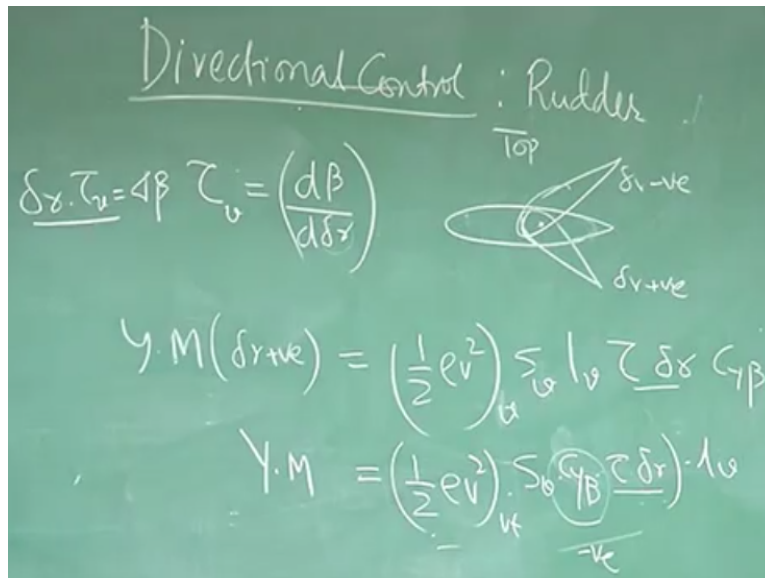 Directional Control : Rudder
Top
δr.τ_v = Δβ τ_v = (dβ/dδr)
δr-ve
δr+ve
Y.M(δr+ve) = (1/2 ρv²)_v S_v l_v τ δr C_yβ
Y.M = (1/2 ρv²)_vt S_v C_yβ τ δr) · l_v
-ve